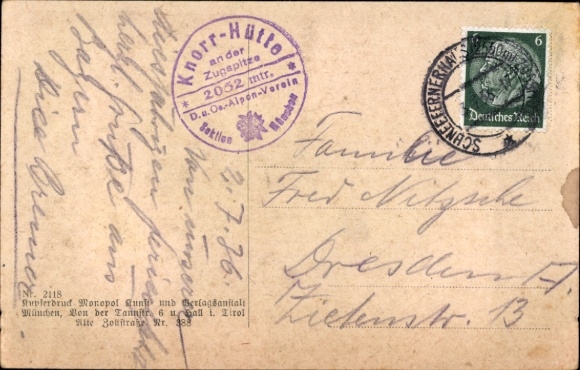 Knorr-Hütte
an der
Zugspitze
2052 mtr.
D.u.Oe.-Alpen-Verein
Sektion München
6
Deutsches Reich
SCHNEEFERNERHAUS
2.7.36.
Von unserer
herzl. Grüße aus
Bayern
Familie
Fred Nitzsche
Dresden A.
Zietenstr. 13
Nr. 2118
Kupferdruck Monopol Kunst- und Verlagsanstalt
München, Von der Tannstr. 6 u. Hall i. Tirol
Alte Zollstraße Nr. 388